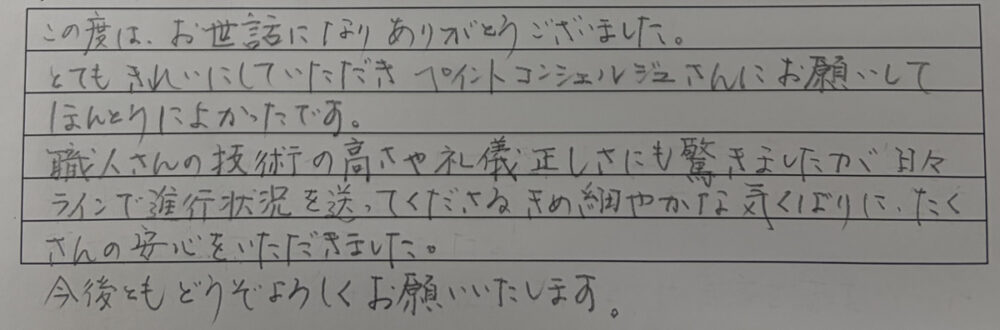 この度は、お世話になりありがとうございました。
とてもきれいにしていただきペイントコンシェルジュさんにお願いして
ほんとうによかったです。
職人さんの技術の高さや礼儀正しさにも驚きましたが日々
ラインで進行状況を送ってくださるきめ細やかな気くばりに、たく
さんの安心をいただきました。
今後ともどうぞよろしくお願いいたします。